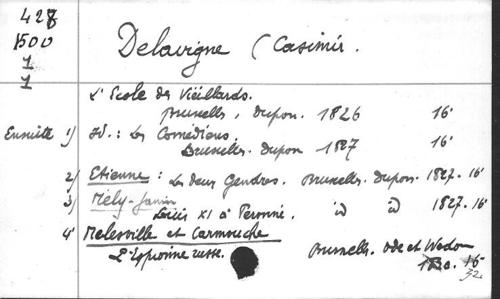 428
1500
1
1
Delavigne (Casimir.
L'Ecole des Vieillards.
Bruxelles, Dupon. 1826 16°
Ensuite 1) Id.: Les Comédiens.
Bruxelles. Dupon 1827 16°
2) Etienne: Les deux Gendres. Bruxelles. Dupon. 1827. 16°
3) Mély-Janin
Louis XI à Peronne. id id 1827. 16°
4° Melesville et Carmouche
L'Espionne russe. Bruxelles. Ode et Wodon
1830. 16°
32.